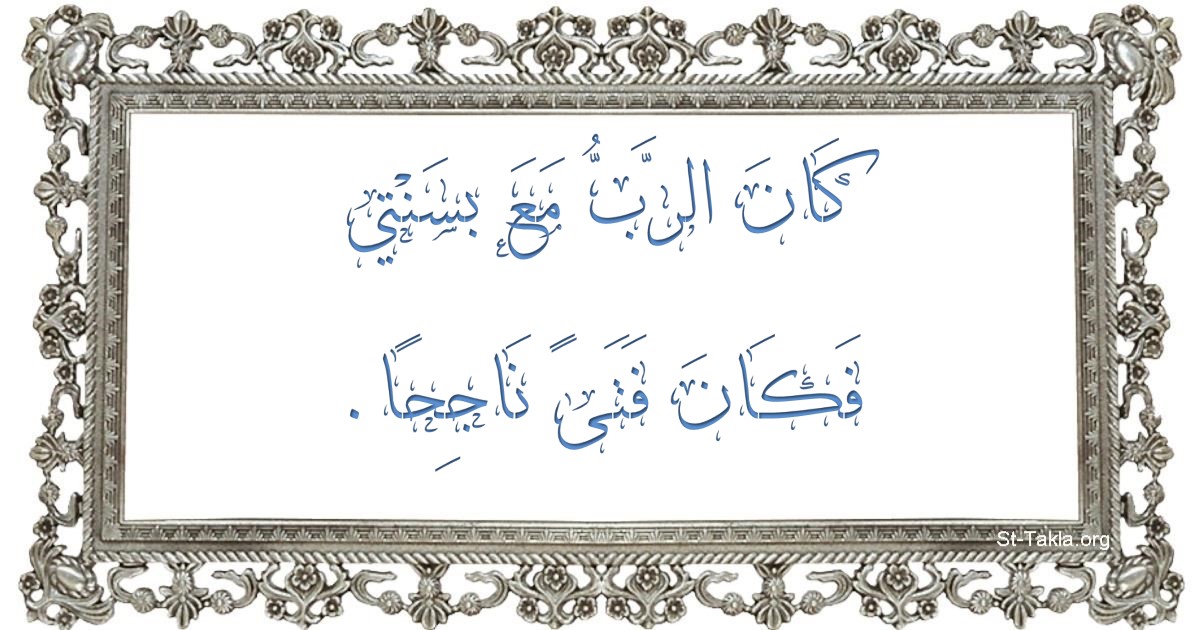 كَانَ الرَّبُّ مَعَ بسَنْتي
فَكَانَ فَتَىً نَاجِحًا .
St-Takla.org